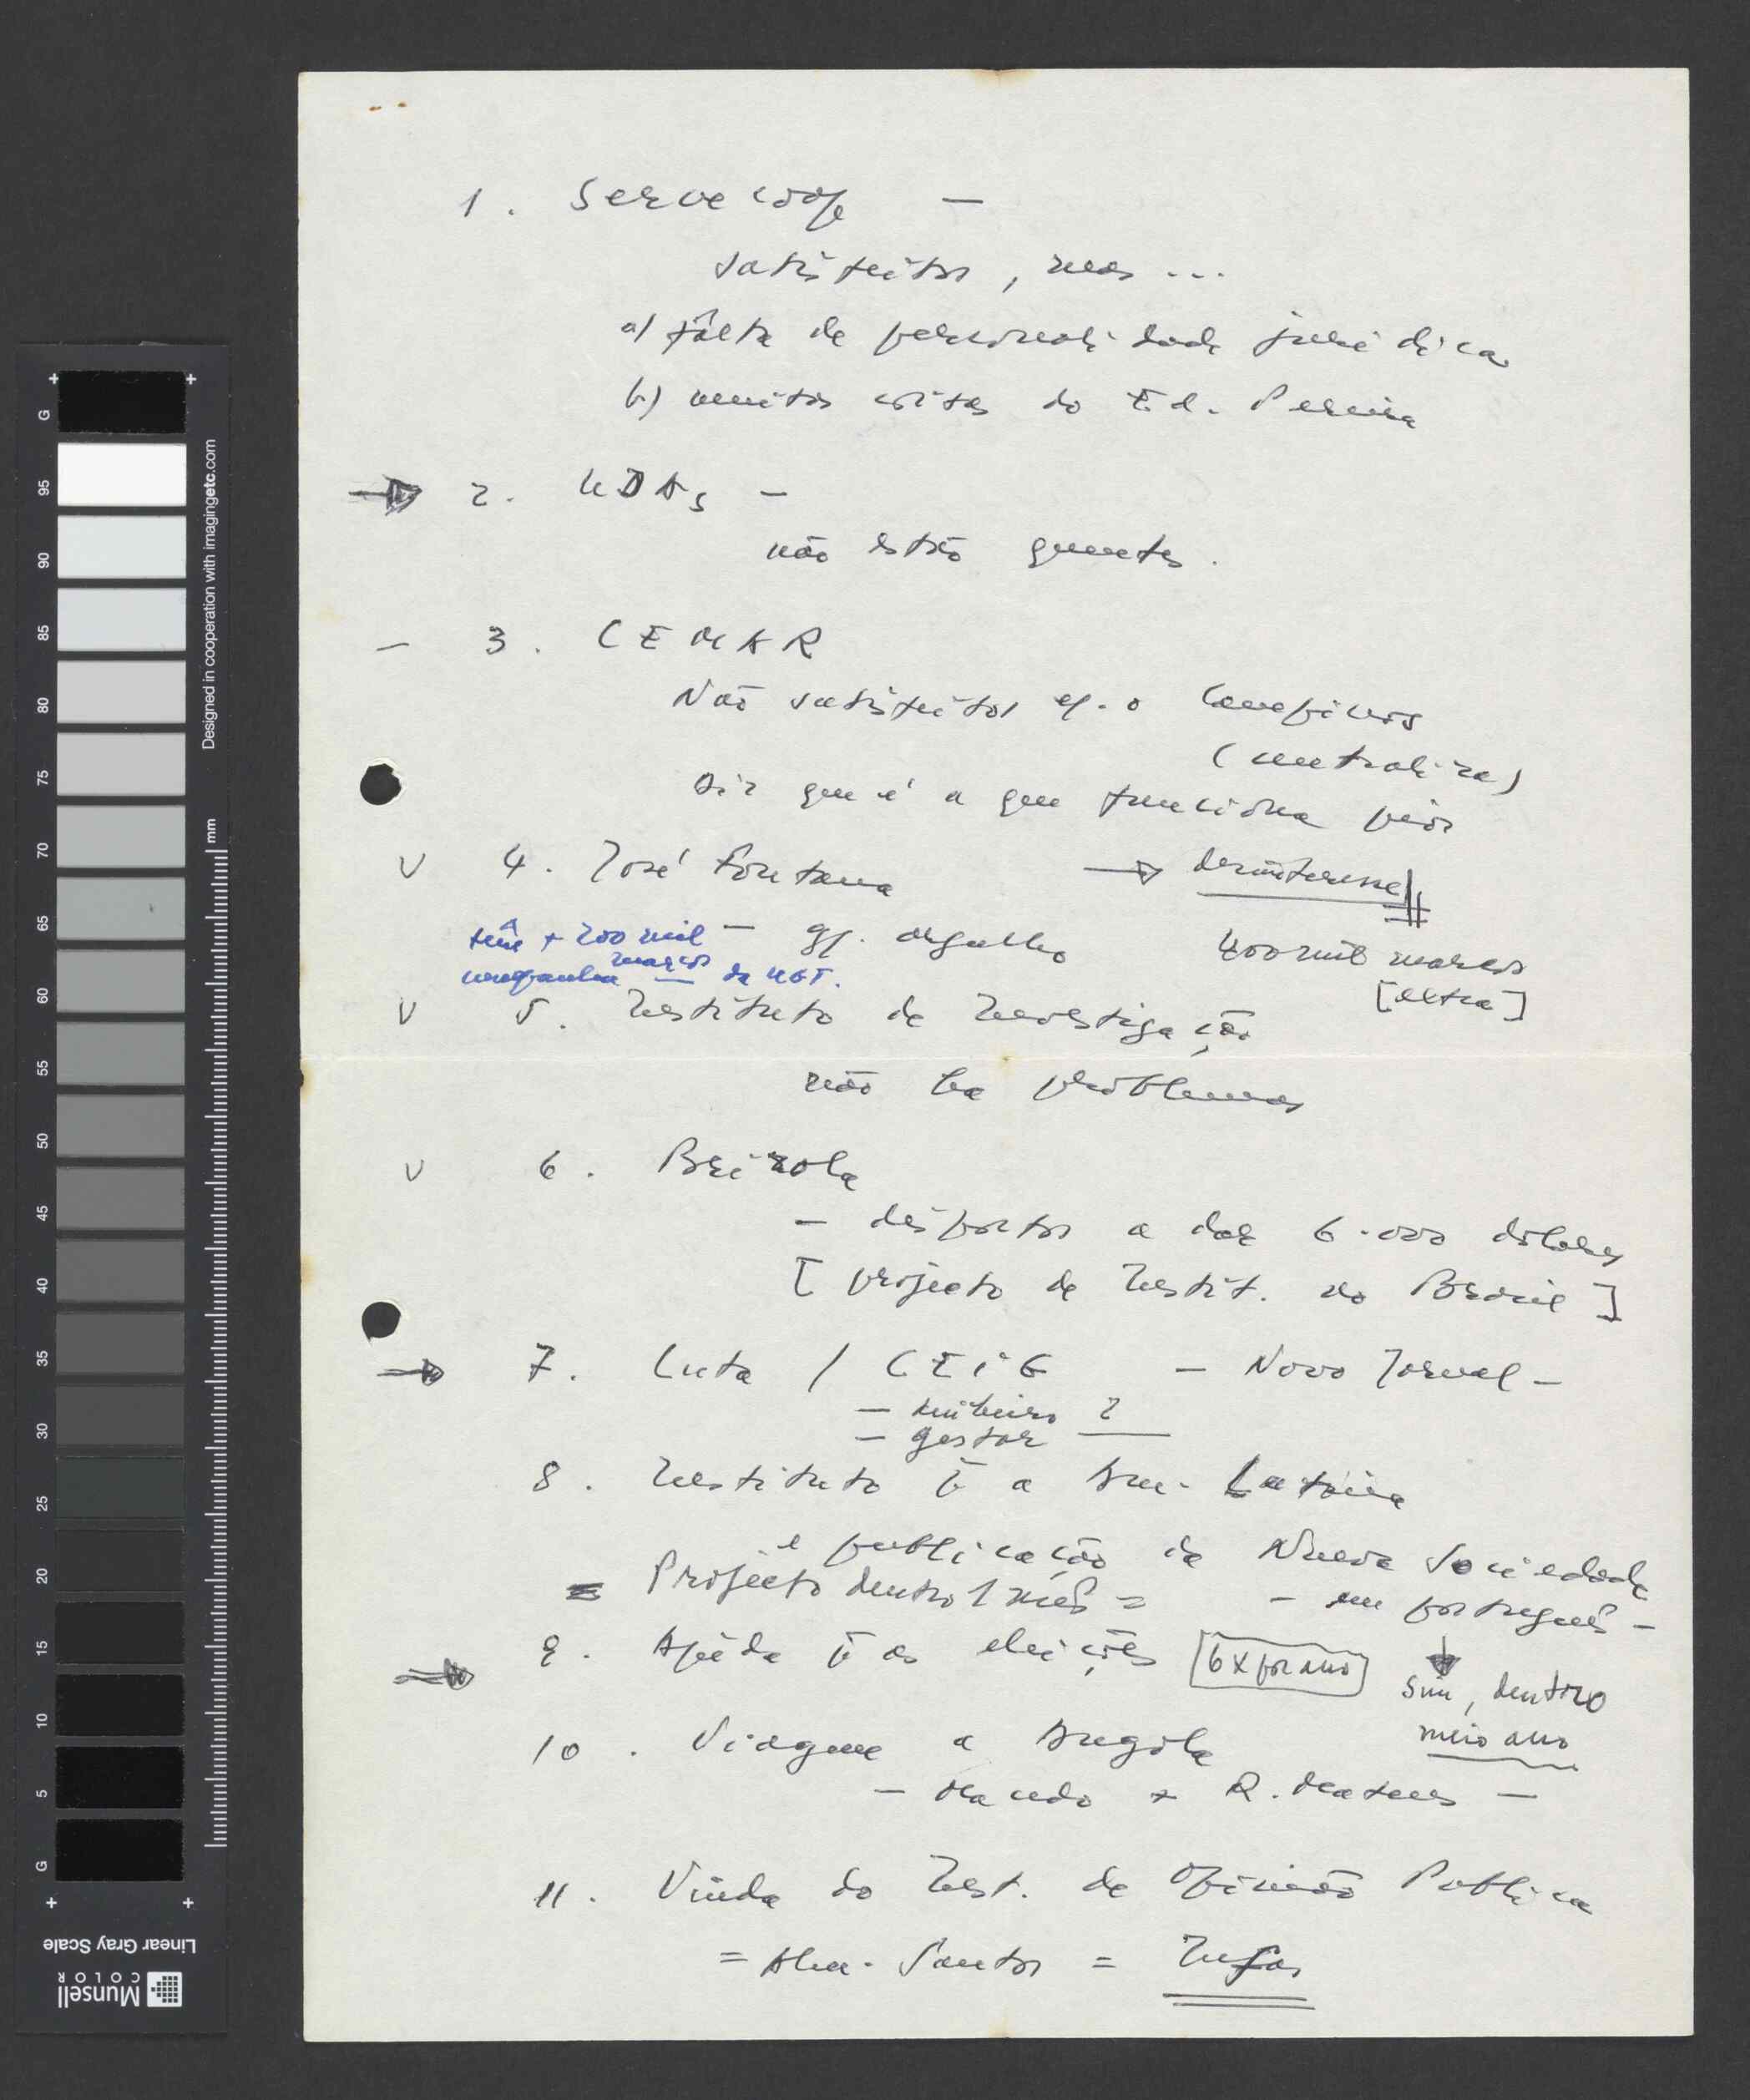 1. Servecoop —
satisfeitos, mas ...
a) falta de personalidade juridica
b) muitas coisas do Ed. Pereira
2. UDAs —
não estão quentes.
— 3. CEMAR
Não satisfeitos c/. o Campinos
(centraliza)
Diz que é a que funciona pior
V 4. José Fontana → desinteresse
têm + 200 mil marcos — gf. orgulho 400 mil marcos
campanha da UGT. [extra]
V 5. Instituto de Investigação
não ha problemas
V 6. Brizola
— dispostos a dar 6.000 dolares
[projecto de Instit. no Brasil]
→ 7. Luta / CEIG — Novo Jornal —
— dinheiro ?
— gestor
8. Instituto p̄ a Am. Latina
e publicação da Nueva Sociedade
= Projecto dentro 1 mês = — em português —
→ 9. Ajuda p̄ as eleições [6 x por ano] ↓ Sim, dentro
meio ano
10. Viagem a Angola
— Macedo + R. Mateus —
11. Vinda do Inst. de Opinião Publica
= Alm. Santos = Infas
G
95
90
85
80
75
70
65
60
55
50
45
40
35
30
25
20
15
10
5
G
mm
Designed in cooperation with imagingetc.com
Linear Gray Scale
Munsell
COLOR